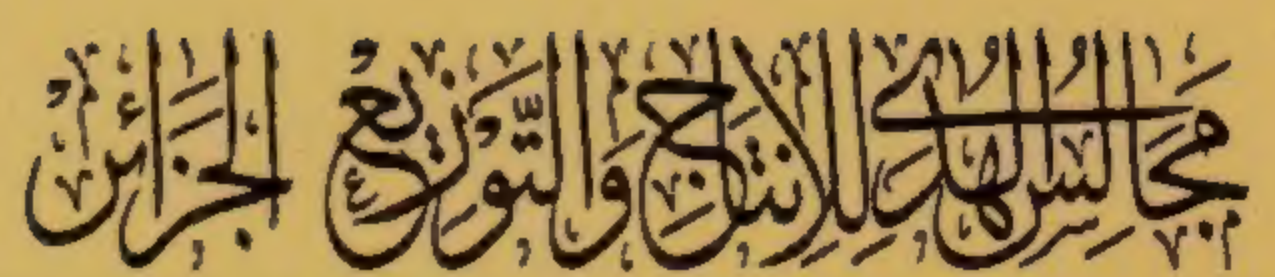 مَجَالِسُ الهُدَى لِلإِنتَاجِ وَالتَّوزِيعِ الجَزَائِر